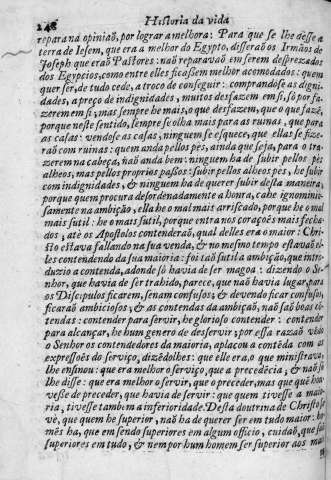 148 Historia da vida
repara na opiniaõ, por lograr a melhora: Para que se lhe desse a
terra de Iesem, que era a melhor do Egypto, disseraõ os Irmãos de
Joseph que eraõ Pastores: naõ reparavaõ em serem desprezados
dos Egypcios, como entre elles ficassem melhor acomodados: quem
quer ser, de tudo cede, a troco de conseguir: comprandose as digni-
dades, a preço de indignidades, muitos desfazem em si, só por fa-
zerem em si; mas sempre he mais, o que desfazem, que o que fazẽ,
porque neste sentido, sempre se olha mais para as ruinas, que para
as casas: vendose as casas, ninguem se esquece, que ellas se fize-
raõ com ruinas: quem anda pellos pés, ainda que seja, para o tra-
zerem na cabeça, naõ anda bem: ninguem ha de subir pellos pés
alheos, mas pellos proprios passos: subir pellos alheos pés, he subir
com indignidades, & ninguem ha de querer subir desta maneira,
porque quem procura desordenadamente a honra, cahe ignominio-
samente na ambiçaõ, ella he o mal mais arriscado, porque he o mal
mais sutil: he o mais sutil, porque entra nos coraçoẽs mais fecha-
dos, até os Apostolos contenderaõ, qual delles era o maior: Chri-
sto estava fallando na sua venda, & no mesmo tempo estavaõ el-
les contendendo da sua maioria: foi taõ sutil a ambiçaõ, que intro-
duzio a contenda, adonde só havia de ser magoa: dizendo o Se-
nhor, que havia de ser trahido, parece, que naõ havia lugar, para
os Discipulos ficarem, senam confusos; & devendo ficar confusos,
ficaraõ ambiciosos; & as contendas da ambiçaõ, naõ saõ boas con-
tendas: contender para servir, he glorioso contender: contender
para alcançar, he hum genero de desservir; por essa razaõ vendo
o Senhor os contendedores da maioria, aplacou a contẽda com as
expressoẽs do serviço, dizẽdolhes: que elle era, o que ministrava,
lhe ensinou: que era melhor o serviço, que a precedẽcia; & naõ só
lhe disse: que era melhor o servir, que o preceder, mas que quẽ hou-
vesse de preceder, que havia de servir: que quem tivesse a maio-
ria, tivesse tambem a inferioridade. Desta doutrina de Christo se
vè, que quem he superior, naõ ha de querer ser em tudo maior: ho-
mẽs ha, que em sendo superiores em algum officio, cuidaõ, que saõ
superiores em tudo, & nem por hum homem ser superior aos mais